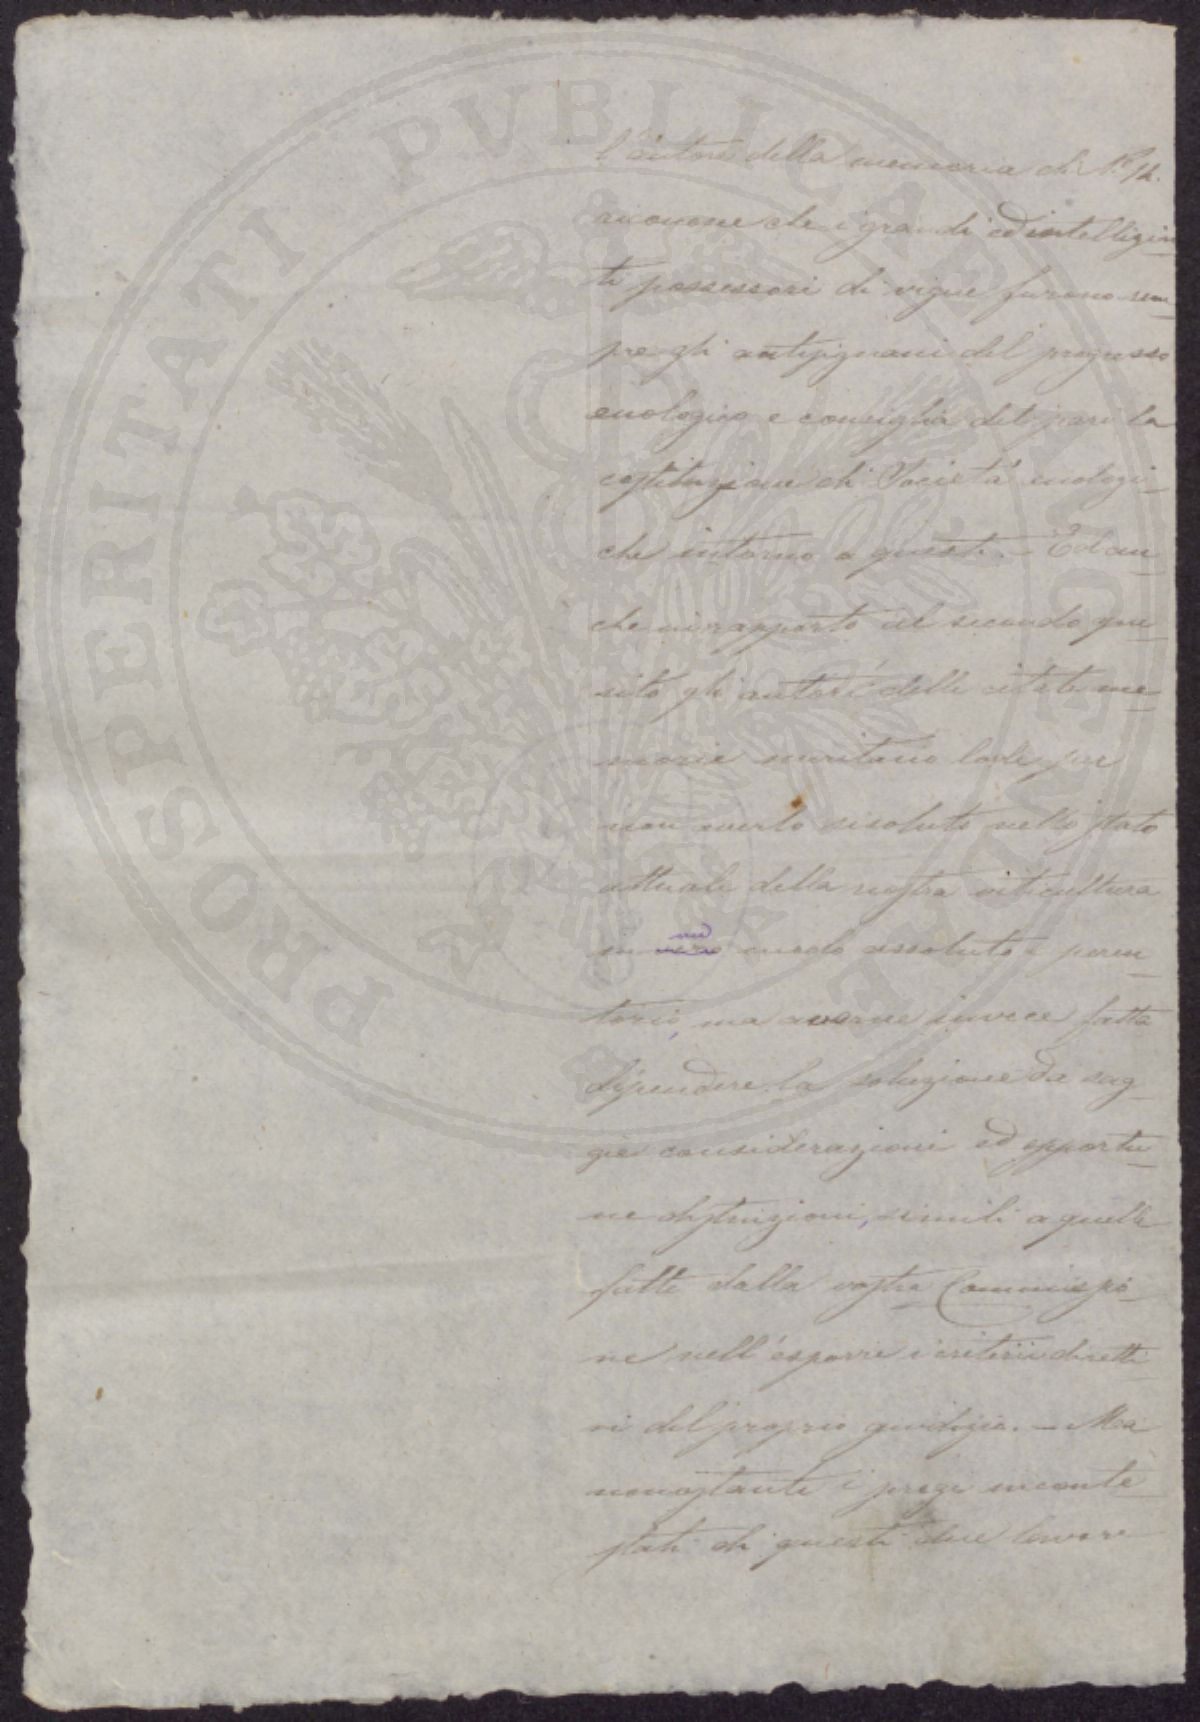 l'autore della memoria di N.º 12.
riconosce che i grandi ed intelligen-
ti possessori di vigne furono sem-
pre gli antesignani del progresso
enologico e consiglia del pari la
costituzione di Società enologi-
che intorno a questi. — Ed an-
che in rapporto al secondo que-
sito gli autori delle citate me-
morie meritano lode per
non averlo risoluto nello stato
attuale della nostra viticultura
in un modo assoluto e peren-
torio, ma averne invece fatta
dipendere la soluzione da sag-
gie considerazioni ed opportu-
ne distinzioni, simili a quelle
fatte dalla vostra Commissio-
ne nell'esporre i criterii diretti-
vi del proprio giudizio. — Ma
nonostante i pregi inconte-
stati di questi due lavori
PROSPERITATI PVBLICAE